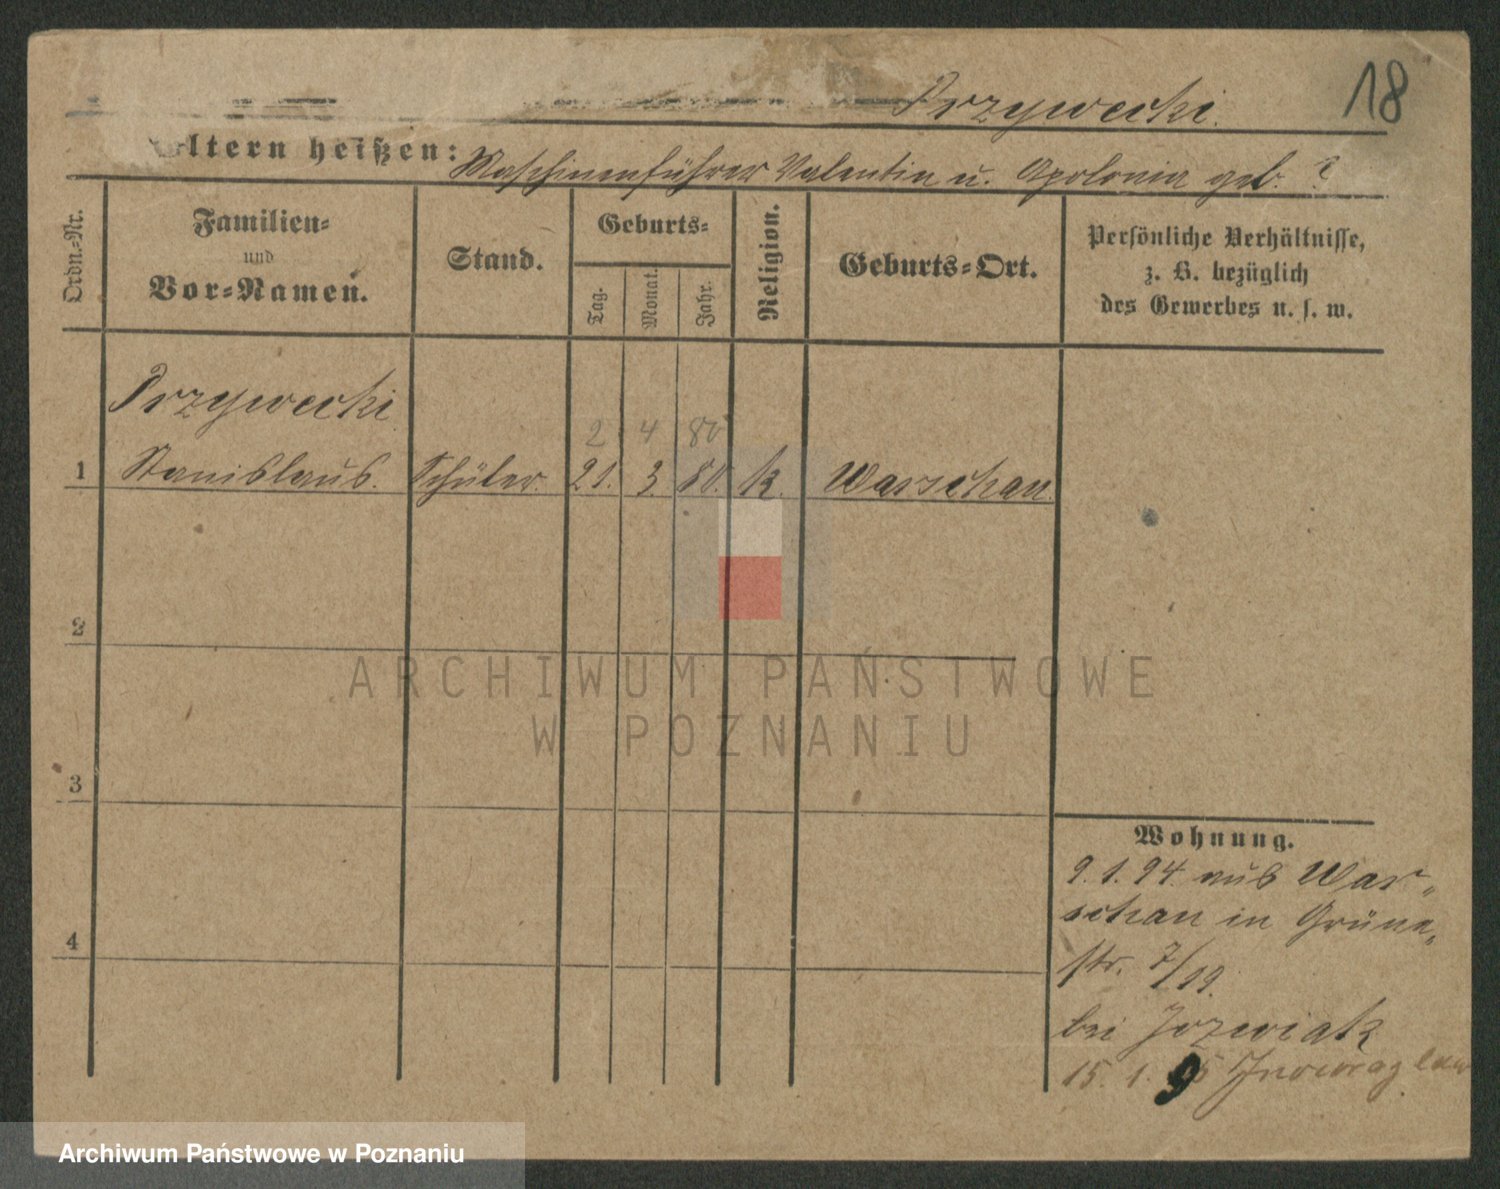 18
Przywecki.
Eltern heißen: Maschinenführer Valentin u. Apolonia geb. ?
Ordn.-Nr.
Familien-
und
Vor-Namen.
Stand.
Geburts-
Tag.
Monat.
Jahr.
Religion.
Geburts-Ort.
Persönliche Verhältnisse,
z. B. bezüglich
des Gewerbes u. s. w.
Przywecki
2 4 80
1 Stanislaus. Schüler. 21. 3. 80. k. Warschau.
2
3
4
Wohnung.
9. 1. 94. aus War-
schau in Grüne-
str. 7/
bei Jozwiak
15. 1. 95 Inowrazlaw
ARCHIWUM PAŃSTWOWE
W POZNANIU
Archiwum Państwowe w Poznaniu